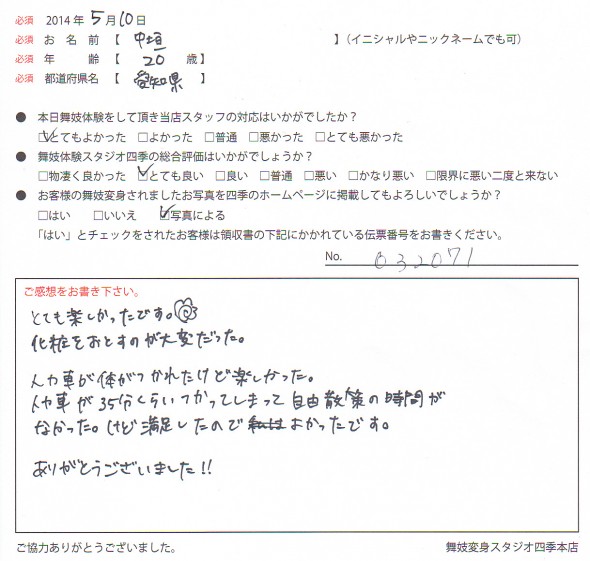 必須 2014 年 5 月 10 日
必須 お 名 前 【 中垣 】(イニシャルやニックネームでも可)
必須 年 齢 【 20 歳】
必須 都道府県名 【 愛知県 】
● 本日舞妓体験をして頂き当店スタッフの対応はいかがでしたか?
☑とてもよかった □よかった □普通 □悪かった □とても悪かった
● 舞妓体験スタジオ四季の総合評価はいかがでしょうか?
□物凄く良かった ☑とても良い □良い □普通 □悪い □かなり悪い □限界に悪い二度と来ない
● お客様の舞妓変身されましたお写真を四季のホームページに掲載してもよろしいでしょうか?
□はい □いいえ ☑写真による
「はい」とチェックをされたお客様は領収書の下記にかかれている伝票番号をお書きください。
No. 032071
ご感想をお書き下さい。
とても楽しかったです。
化粧をおとすのが大変だった。
人力車が体がつかれたけど楽しかった。
人力車が35分くらいつかってしまって自由散策の時間が
なかった。けど満足したのでよかったです。
ありがとうございました!!
ご協力ありがとうございました。
舞妓変身スタジオ四季本店